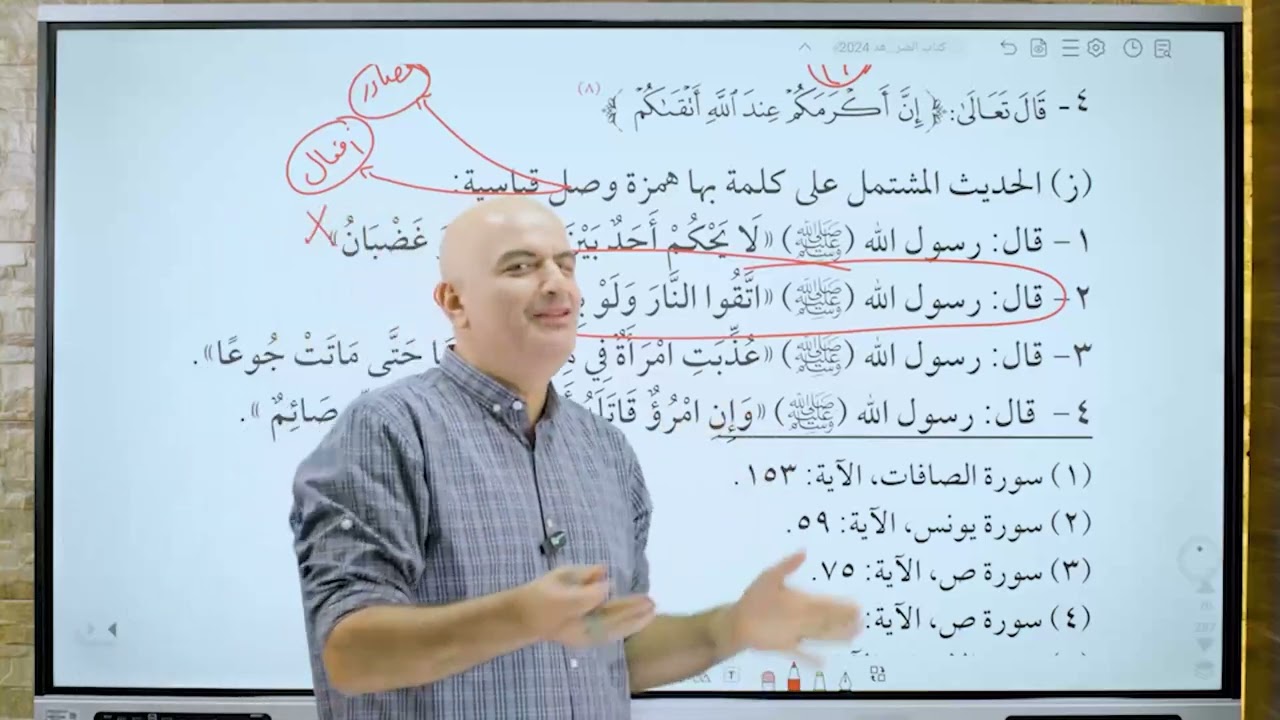 كتاب 2024
مصادر
افعال
٤- قَالَ تَعَالَىٰ: ﴿ إِنَّ أَكْرَمَكُمْ عِندَ ٱللَّهِ أَتْقَىٰكُمْ ﴾ (٨)
(ز) الحديث المشتمل على كلمة بها همزة وصل قياسية:
١- قال: رسول الله (ﷺ) «لَا يَحْكُمْ أَحَدٌ بَيْنَ غَضْبَانُ»
٢- قال: رسول الله (ﷺ) «اتَّقُوا النَّارَ وَلَوْ
٣- قال: رسول الله (ﷺ) «عُذِّبَتِ امْرَأَةٌ فِي حَتَّى مَاتَتْ جُوعًا».
٤- قال: رسول الله (ﷺ) «وَإِنِ امْرُؤٌ قَاتَلَهُ صَائِمٌ».
(١) سورة الصافات، الآية: ١٥٣.
(٢) سورة يونس، الآية: ٥٩.
(٣) سورة ص، الآية: ٧٥.
(٤) سورة ص، الآية: